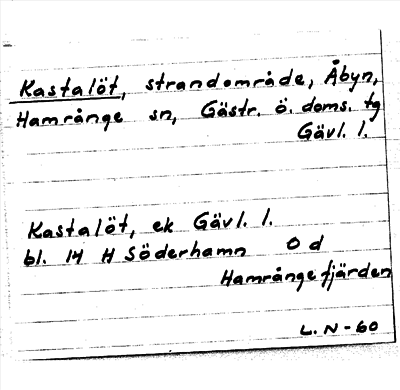 Kastalöt, strandområde, Åbyn,
Hamrånge sn, Gästr. ö. doms. tg
Gävl. l.
Kastalöt, ek Gävl. l.
bl. 14 H Söderhamn O d
Hamrångefjärden
L. N - 60